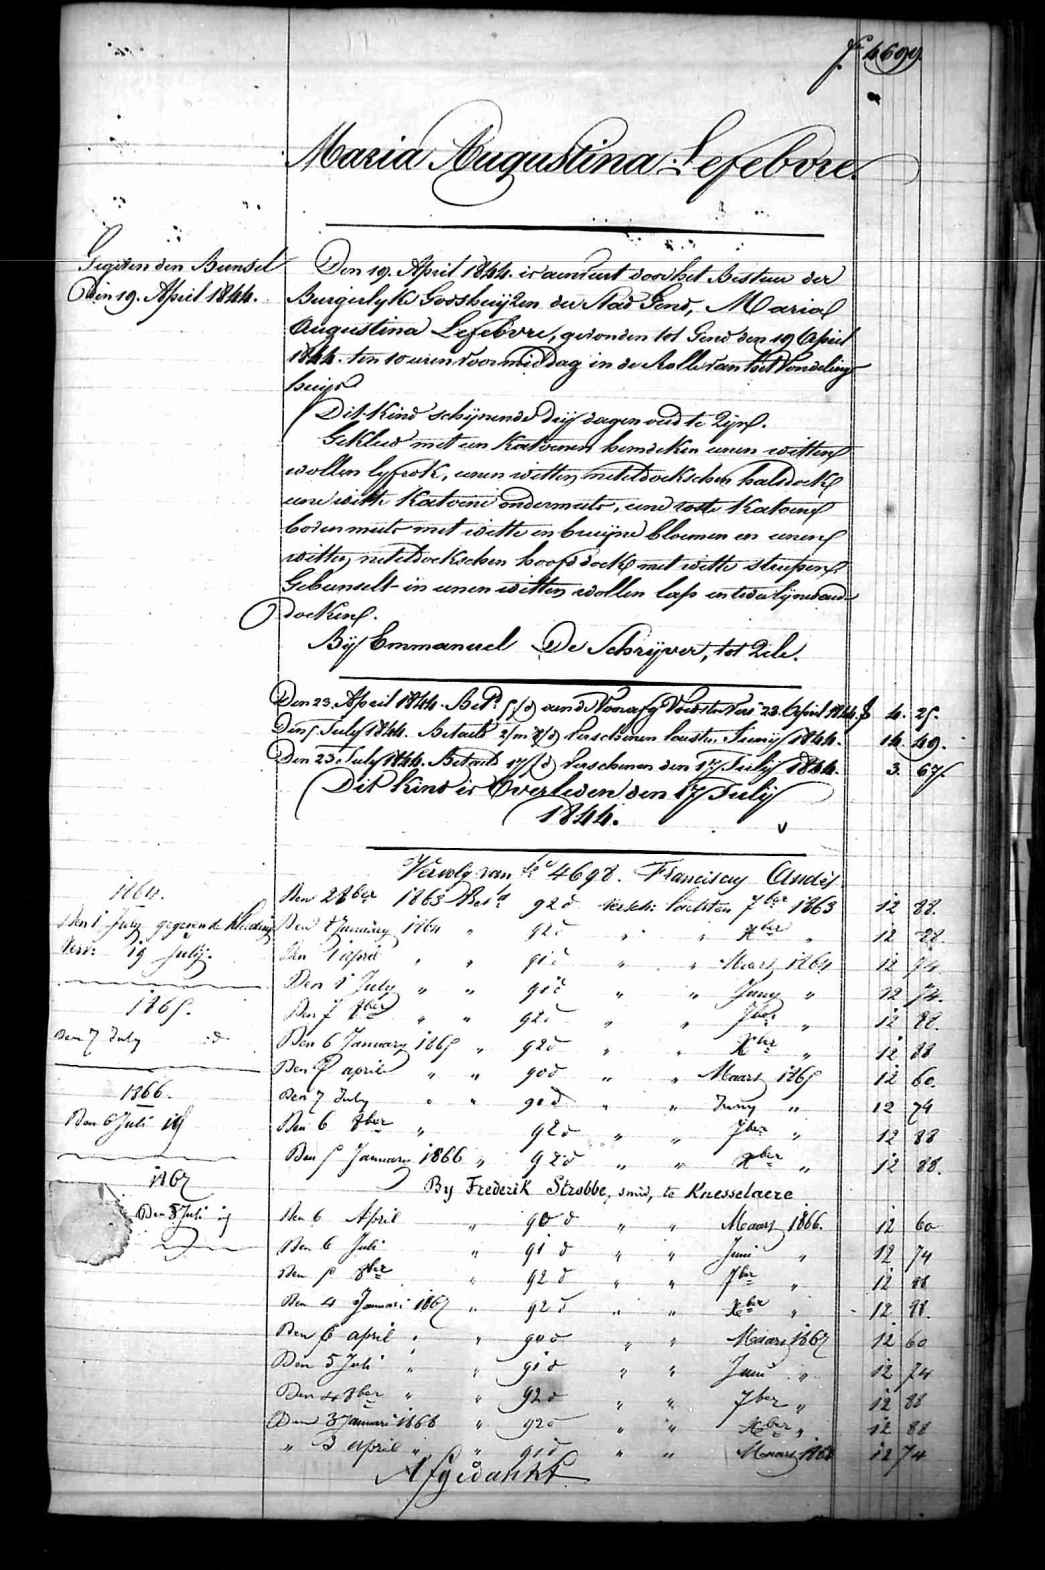 fo 4699
Maria Augustina Lefebvre.
Gegeven den Bunsel
Den 19. April 1844.
Den 19. April 1844. is aenveirt door het Bestuer der
Burgerlyke Godshuijzen der stad Gend, Maria
Augustina Lefebvre, gevonden tot Gend den 19 April
1844. ten 10 uren voormiddag in de Rolle van het Vondeling
huijs
Dit Kind schijnende drij dagen oud te Zijn.
Gekleed met een Katoenen hemdeken eenen witten
wollen lyfrok, eenen witten neteldoekschen halsdoek
eene witte Katoene ondermuts, eene roste Katoene
bovenmuts met witte en bruijne bloemen en eenen
witten neteldoekschen hoofddoek met witte streepen
Gebunselt in eenen witten wollen lap en twee lijnwaede
doeken.
Bij Emmanuel De Schrijver, tot Zele.
Den 23. April 1844. Bet. 5/d aen de Voedster vers 23. April 1844. f 4. 25.
Den 5 July 1844. Betaelt 2/m 8/d Verschenen Junij 1844. 14 49.
Den 23. July 1844. Betaelt 17/d Verschenen den 17 July 1844. 3. 67.
Dit Kind is Overleden den 17 Julij
1844.
Vervolg van fo 4698. Franciscus
Den 2 8ber 1863 Bet. 92 d versch. 7ber 1863 12 88.
1864.
Den 1 July gegeven de Kleeding
Vers. 19 Julij.
Den 8 January 1864 " 92 d " " Xber " 12 88.
Den april " " 91 d " " Maart 1864 12 74.
Den 1 July " " 91 d " " Juny " 12 74.
1865.
Den 7 8ber " " 92 d " " 7ber " 12 88.
Den 7 July d
Den 6 January 1865 " 92 d " " Xber " 12 88
Den 7 april " " 90 d " " Maart 1865 12 60.
1866.
Den 7 July " " 91 d " " Juny " 12 74
Den 6 Juli id
Den 6 8ber " 92 d " " 7ber " 12 88
Den 5 January 1866 " 92 d " " Xber " 12 88.
1867
By Frederik Strobbe, smid, te Knesselaere
Den 5 Juli id
Den 6 April " 90 d " " Maart 1866. 12 60
Den 6 Juli " 91 d " " Juni " 12 74
Den 5 8ber " 92 d " " 7ber " 12 88
Den 4 Januari 1867 " 92 d " " Xber " 12 88.
Den 6 april " " 90 d " " Maart 1867 12 60
Den 5 Juli " " 91 d " " Juni " 12 74
Den 4 8ber " " 92 d " " 7ber " 12 88
Den 3 Januari 1868 " 92 d " " Xber " 12 88
" 3 april " " 91 d " " Maart 1868 12 74
Afgedankt